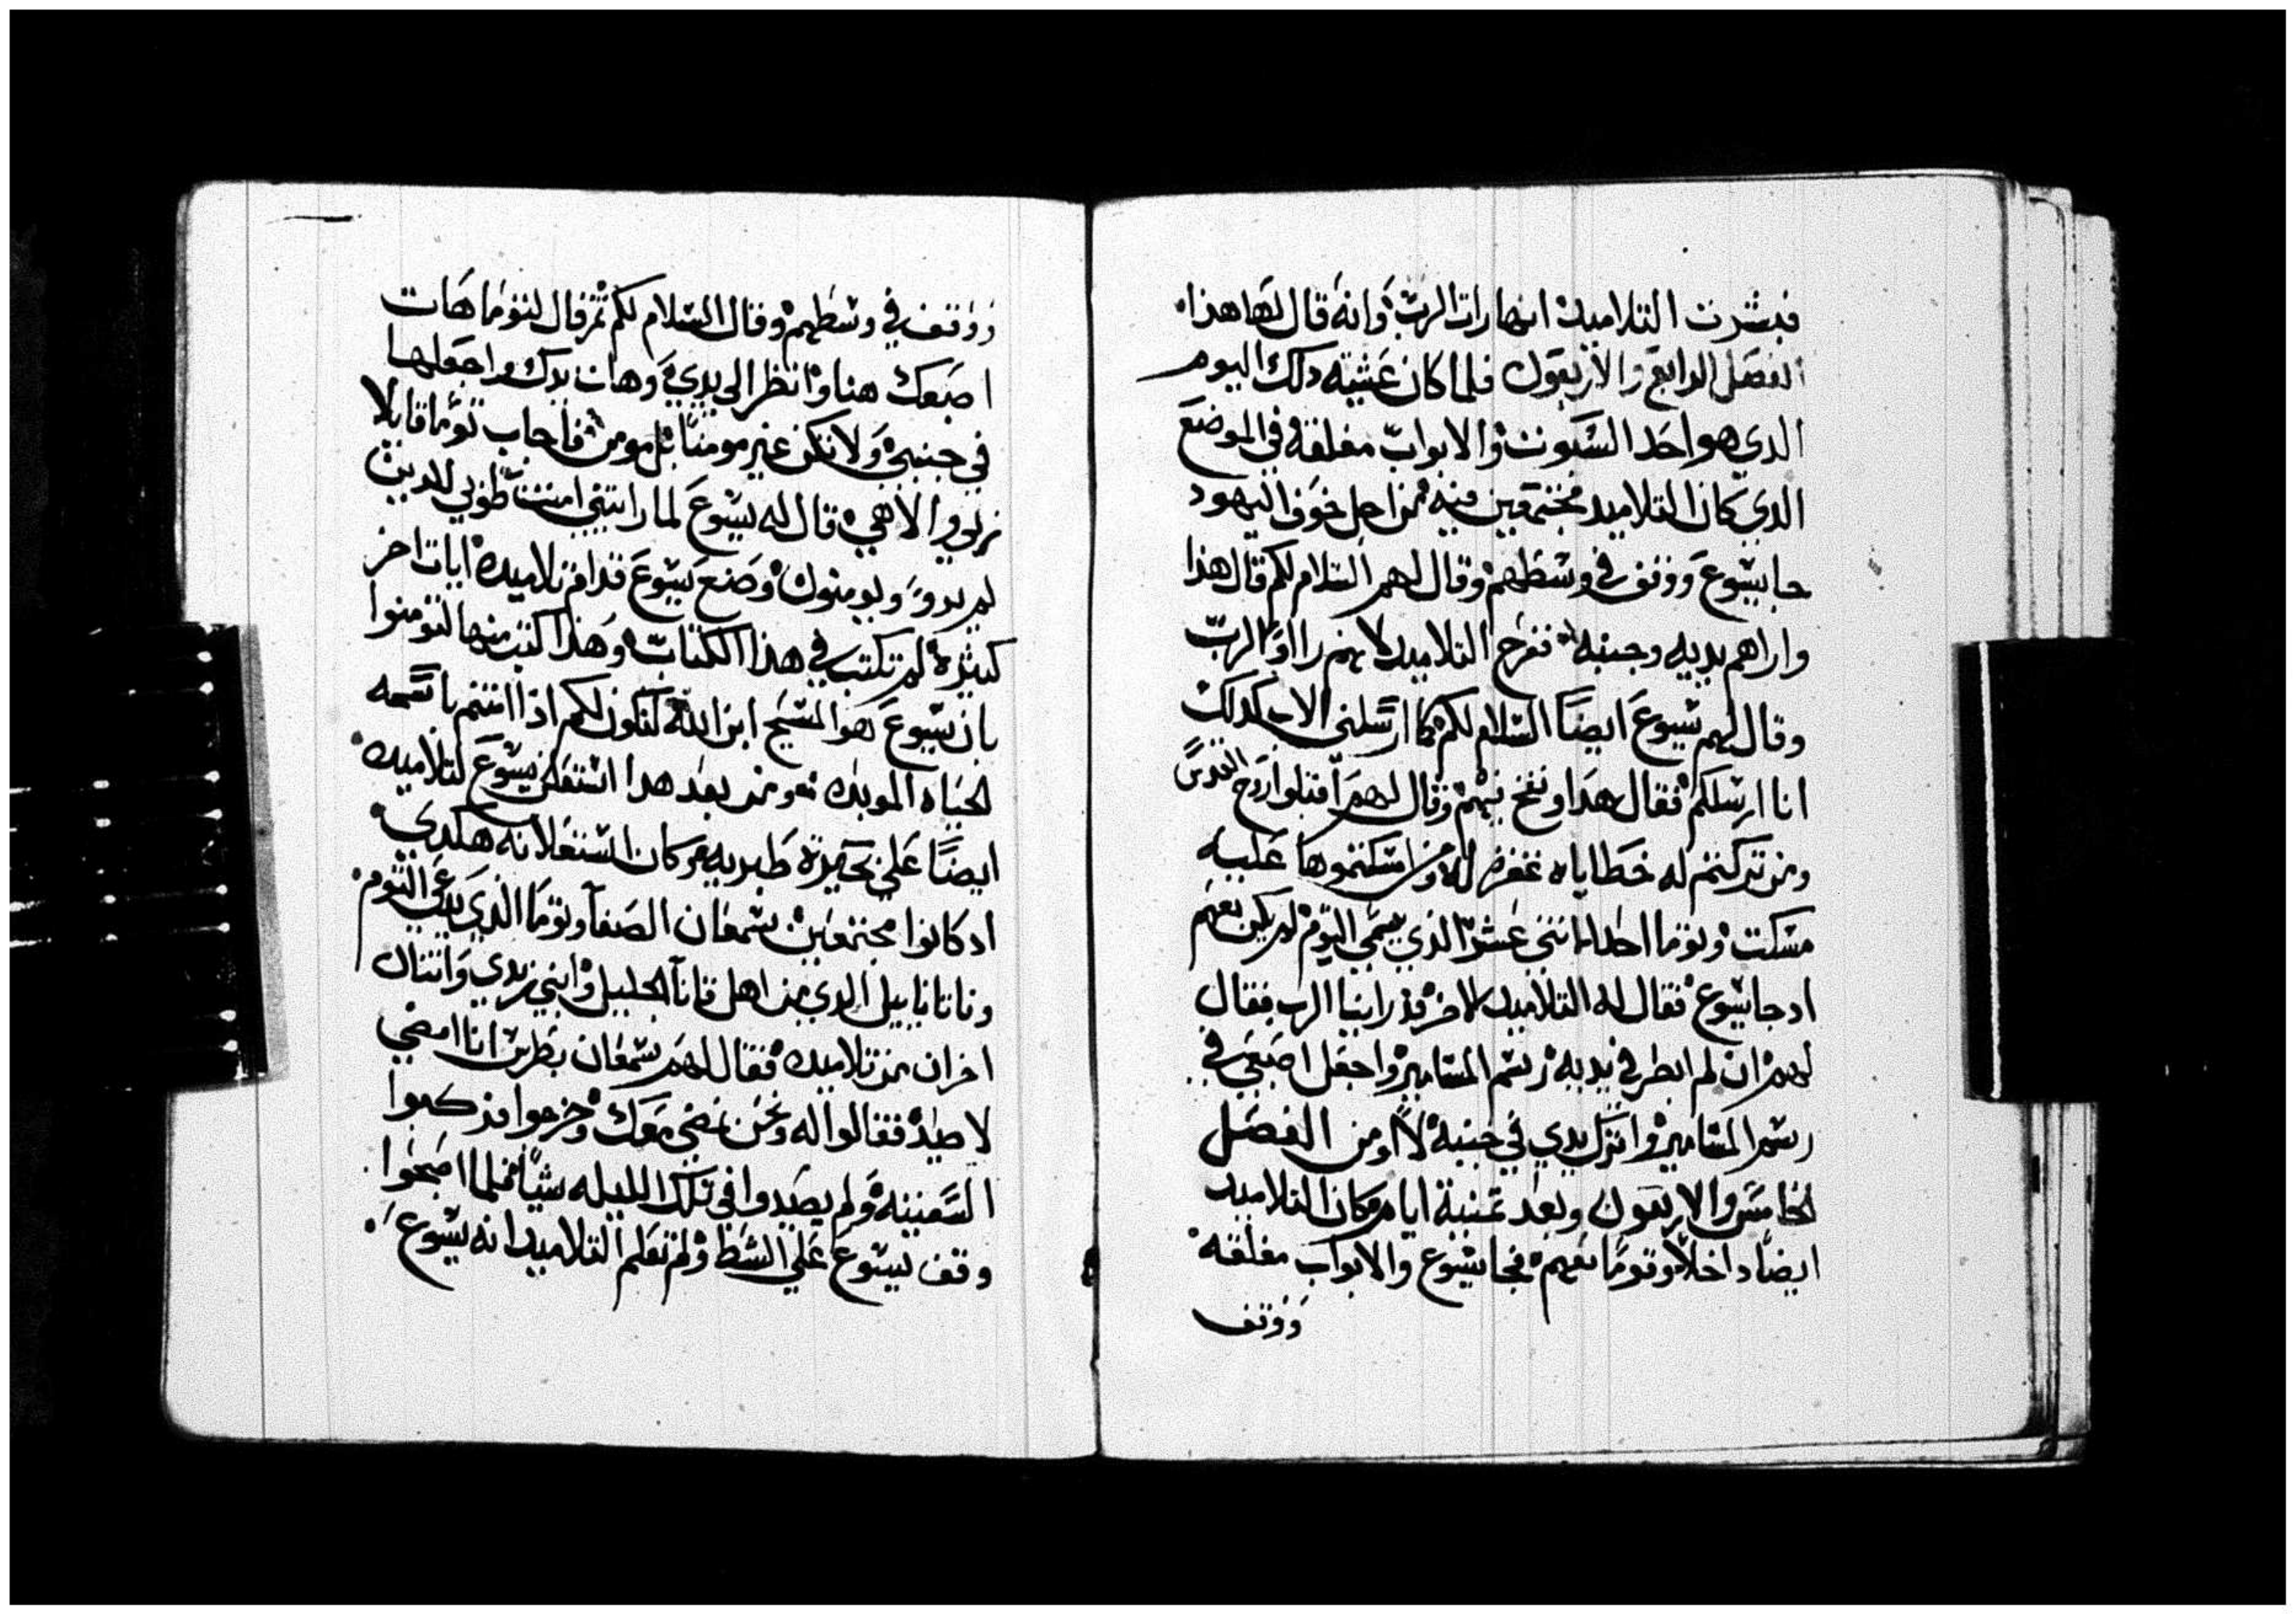 فبشرت التلاميد انها رات الرب وانه قال لها هذا
الفصل الرابع والاربعون فلما كان عشية دلك اليوم
الدي هو احد السبوت والابواب مغلقه في الموضع
الدي كان التلاميد مجتمعين فيه من اجل خوف اليهود
جا يسوع ووقف في وسطهم وقال لهم السلام لكم قال هذا
واراهم يديه وجنبه ففرح التلاميد لانهم راوا الرب
وقال لهم يسوع ايضًا السلام لكم كما ارسلني الاب كدلك
انا ارسلكم فقال هدا ونفخ فيهم وقال لهم اقبلوا روح القدس
ومن تركتم له خطاياه غفرة له ومن امسكتموها عليه
مسكت وتوما احد الاتني عشر الدي يسمي التوم لم يكن معهم
اد جا يسوع فقال له التلاميد الاخر قد راينا الرب فقال
لهم ان لم ابطر في يديه رسم المسامير واجعل اصبعي في
رسم المسامير واترك يدي في جنبه لا اومن الفصل
الخامس والاربعون وبعد تمنية ايام كان التلاميد
ايضًا داخلًا وتوما معهم فجا يسوع والابواب مغلقه
ووقف
ووقف في وسطهم وقال السلام لكم ثم قال لتوما هات
اصبعك هنا وانظر الي يدي وهات يدك واجعلها
في جنبي ولا تكن غير مومنًا بل مومن فاجاب توما قايلا
ربي والاهي قال له يسوع لما رايتني امنت طوبي للدين
لم يرو ويومنون وضع يسوع قدام تلاميده ايات اخر
كثيره لم تكتب في هدا الكتاب وهدا كتب منها لتومنوا
بان يسوع هو المسيح ابن الله لتكون لكم ادا امنتم باسمه
الحياه الموبده ومن بعد هدا استعلن يسوع لتلاميده
ايضًا علي بحيرة طبريه وكان استعلانه هكدي
اد كانوا مجتمعين سمعان الصفا وتوما الدي يدعي التوم
وناتانابيل الدي من اهل قانا الجليل وابني زبدي واتنان
اخران من تلاميده فقال لهم سمعان بطرس انا امضي
لاصيد فقالوا له ونحن نمضي معك وخرجوا فركبوا
السفينه ولم يصيدوا في تلك الليله شيا فلما اصبحوا
وقف يسوع علي الشط ولم تعلم التلاميد انه يسوع